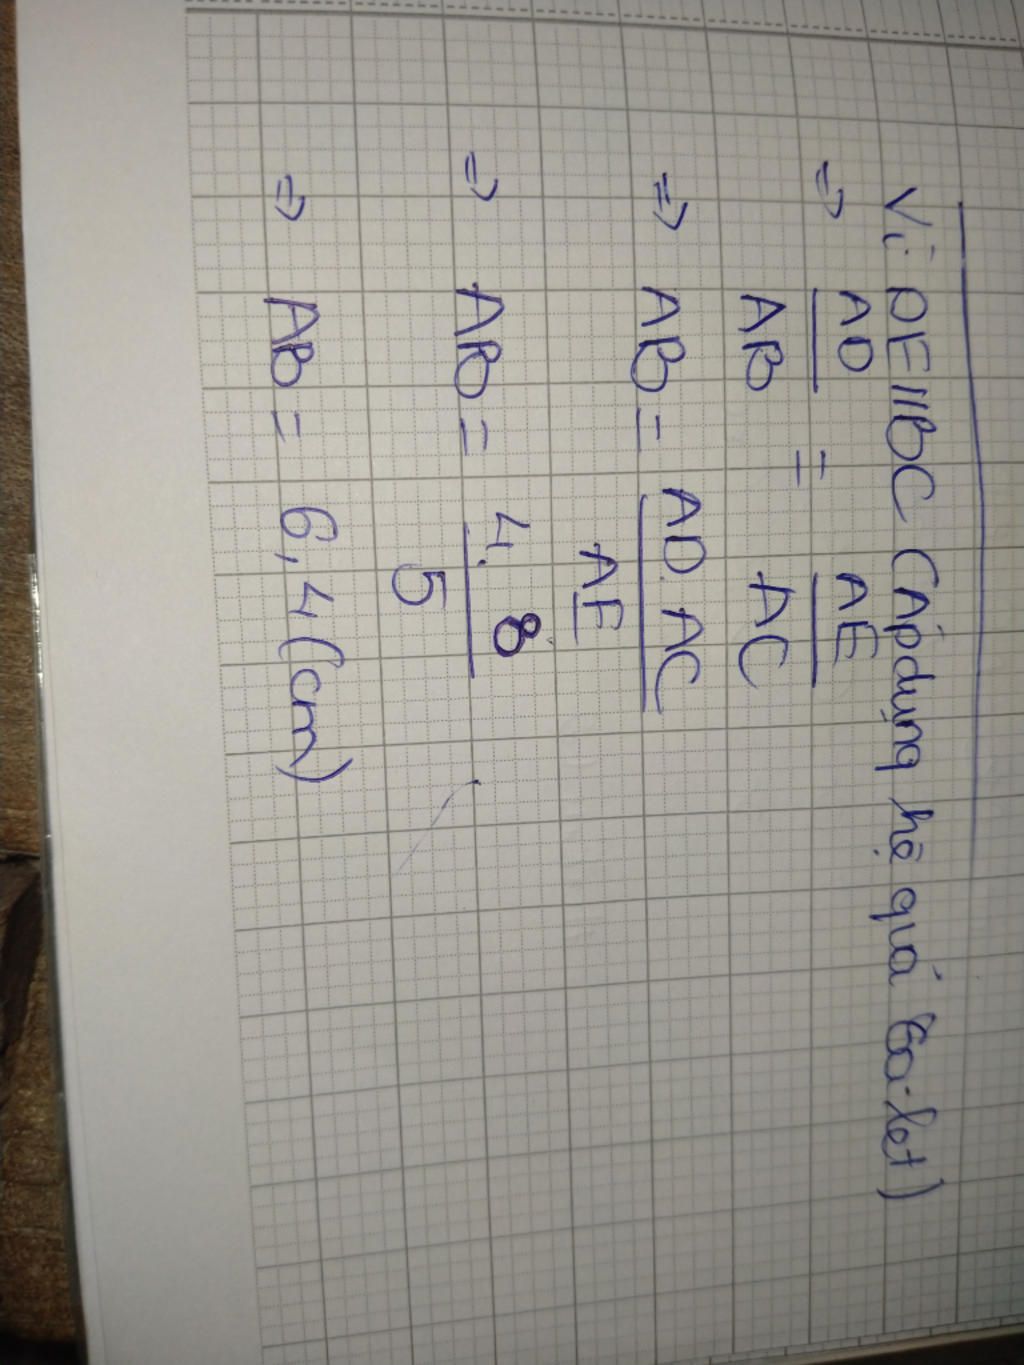 Vì DE//BC (Áp dụng hệ quả Ta-let)
=> AD/AB = AE/AC
=> AB = AD.AC/AE
=> AB = 4.8/5
=> AB = 6,4 (cm)